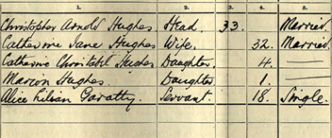 1. 2. 3. 4. 5.
Christopher Arnold Hughes Head 33 Married
Catherine Jane Hughes Wife. 32. Married
Catherine Hughes Daughter. 4. —
Marion Hughes. Daughter 1. —
Alice Garatty. Servant 18. Single